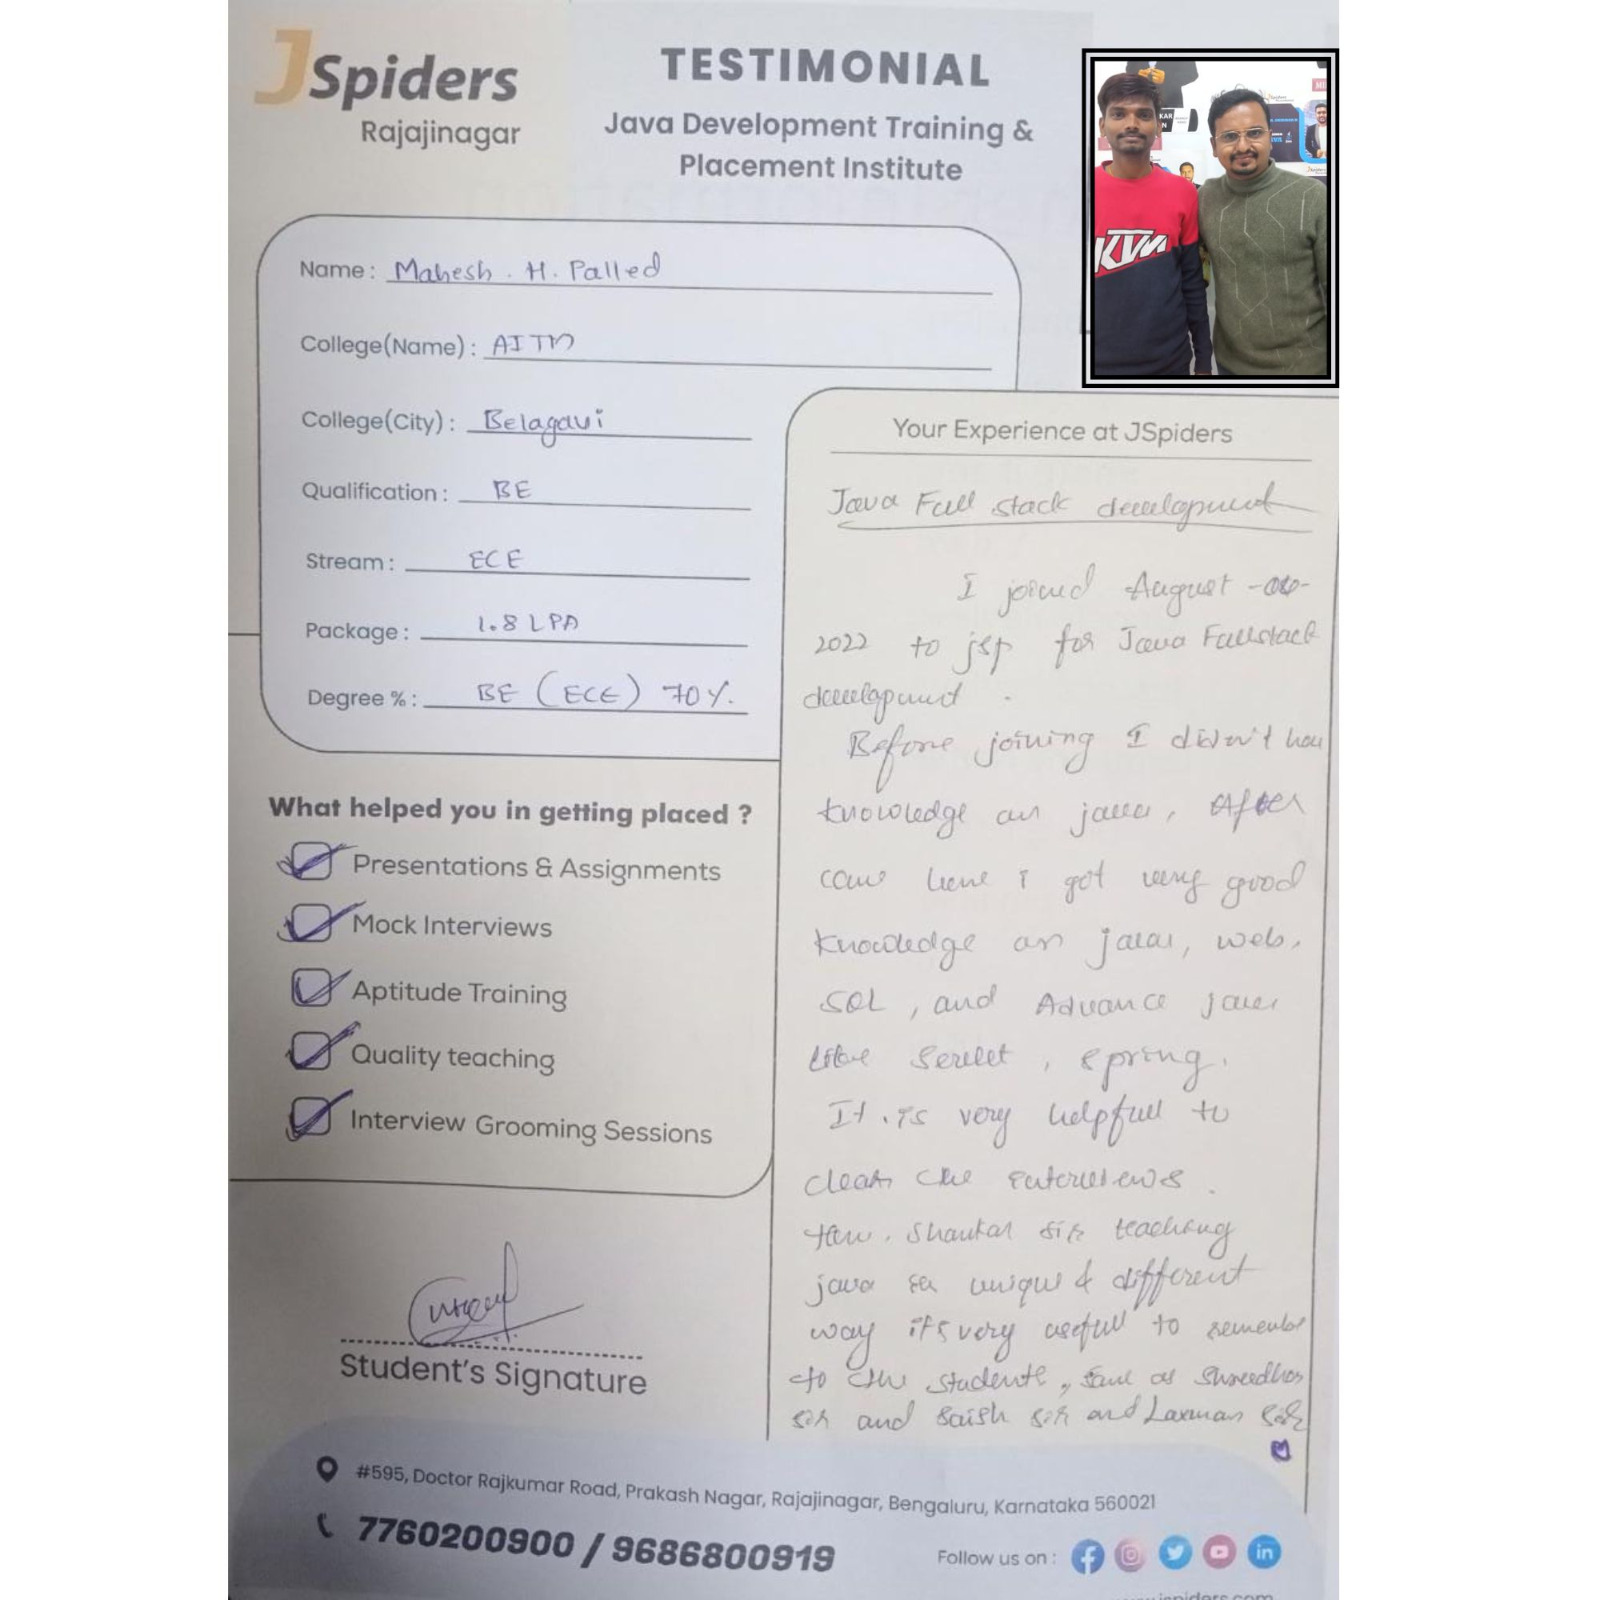 JSpiders
Rajajinagar
TESTIMONIAL
Java Development Training &
Placement Institute
KTM
Name : Mahesh . H. Palled
College(Name) : AITM
College(City) : Belagavi
Qualification : BE
Stream : ECE
Package : 1.8 LPA
Degree % : BE (ECE) 70%.
What helped you in getting placed ?
Presentations & Assignments
Mock Interviews
Aptitude Training
Quality teaching
Interview Grooming Sessions
Student's Signature
Your Experience at JSpiders
Java Full stack development
I joined August
2022 to jsp for Java Fullstack
development .
Before joining I didn't
knowledge on java, After
came here i got very good
knowledge on java, web,
SQL , and Advance java
like Servlet , spring.
It is very helpfull to
clear the interviews .
Shankar sir teaching
java unique & different
way it's very usefull to
to the students , same as Shreedhar
sir and Saish sir and Laxman sir
#595, Doctor Rajkumar Road, Prakash Nagar, Rajajinagar, Bengaluru, Karnataka 560021
7760200900 / 9686800919
Follow us on :